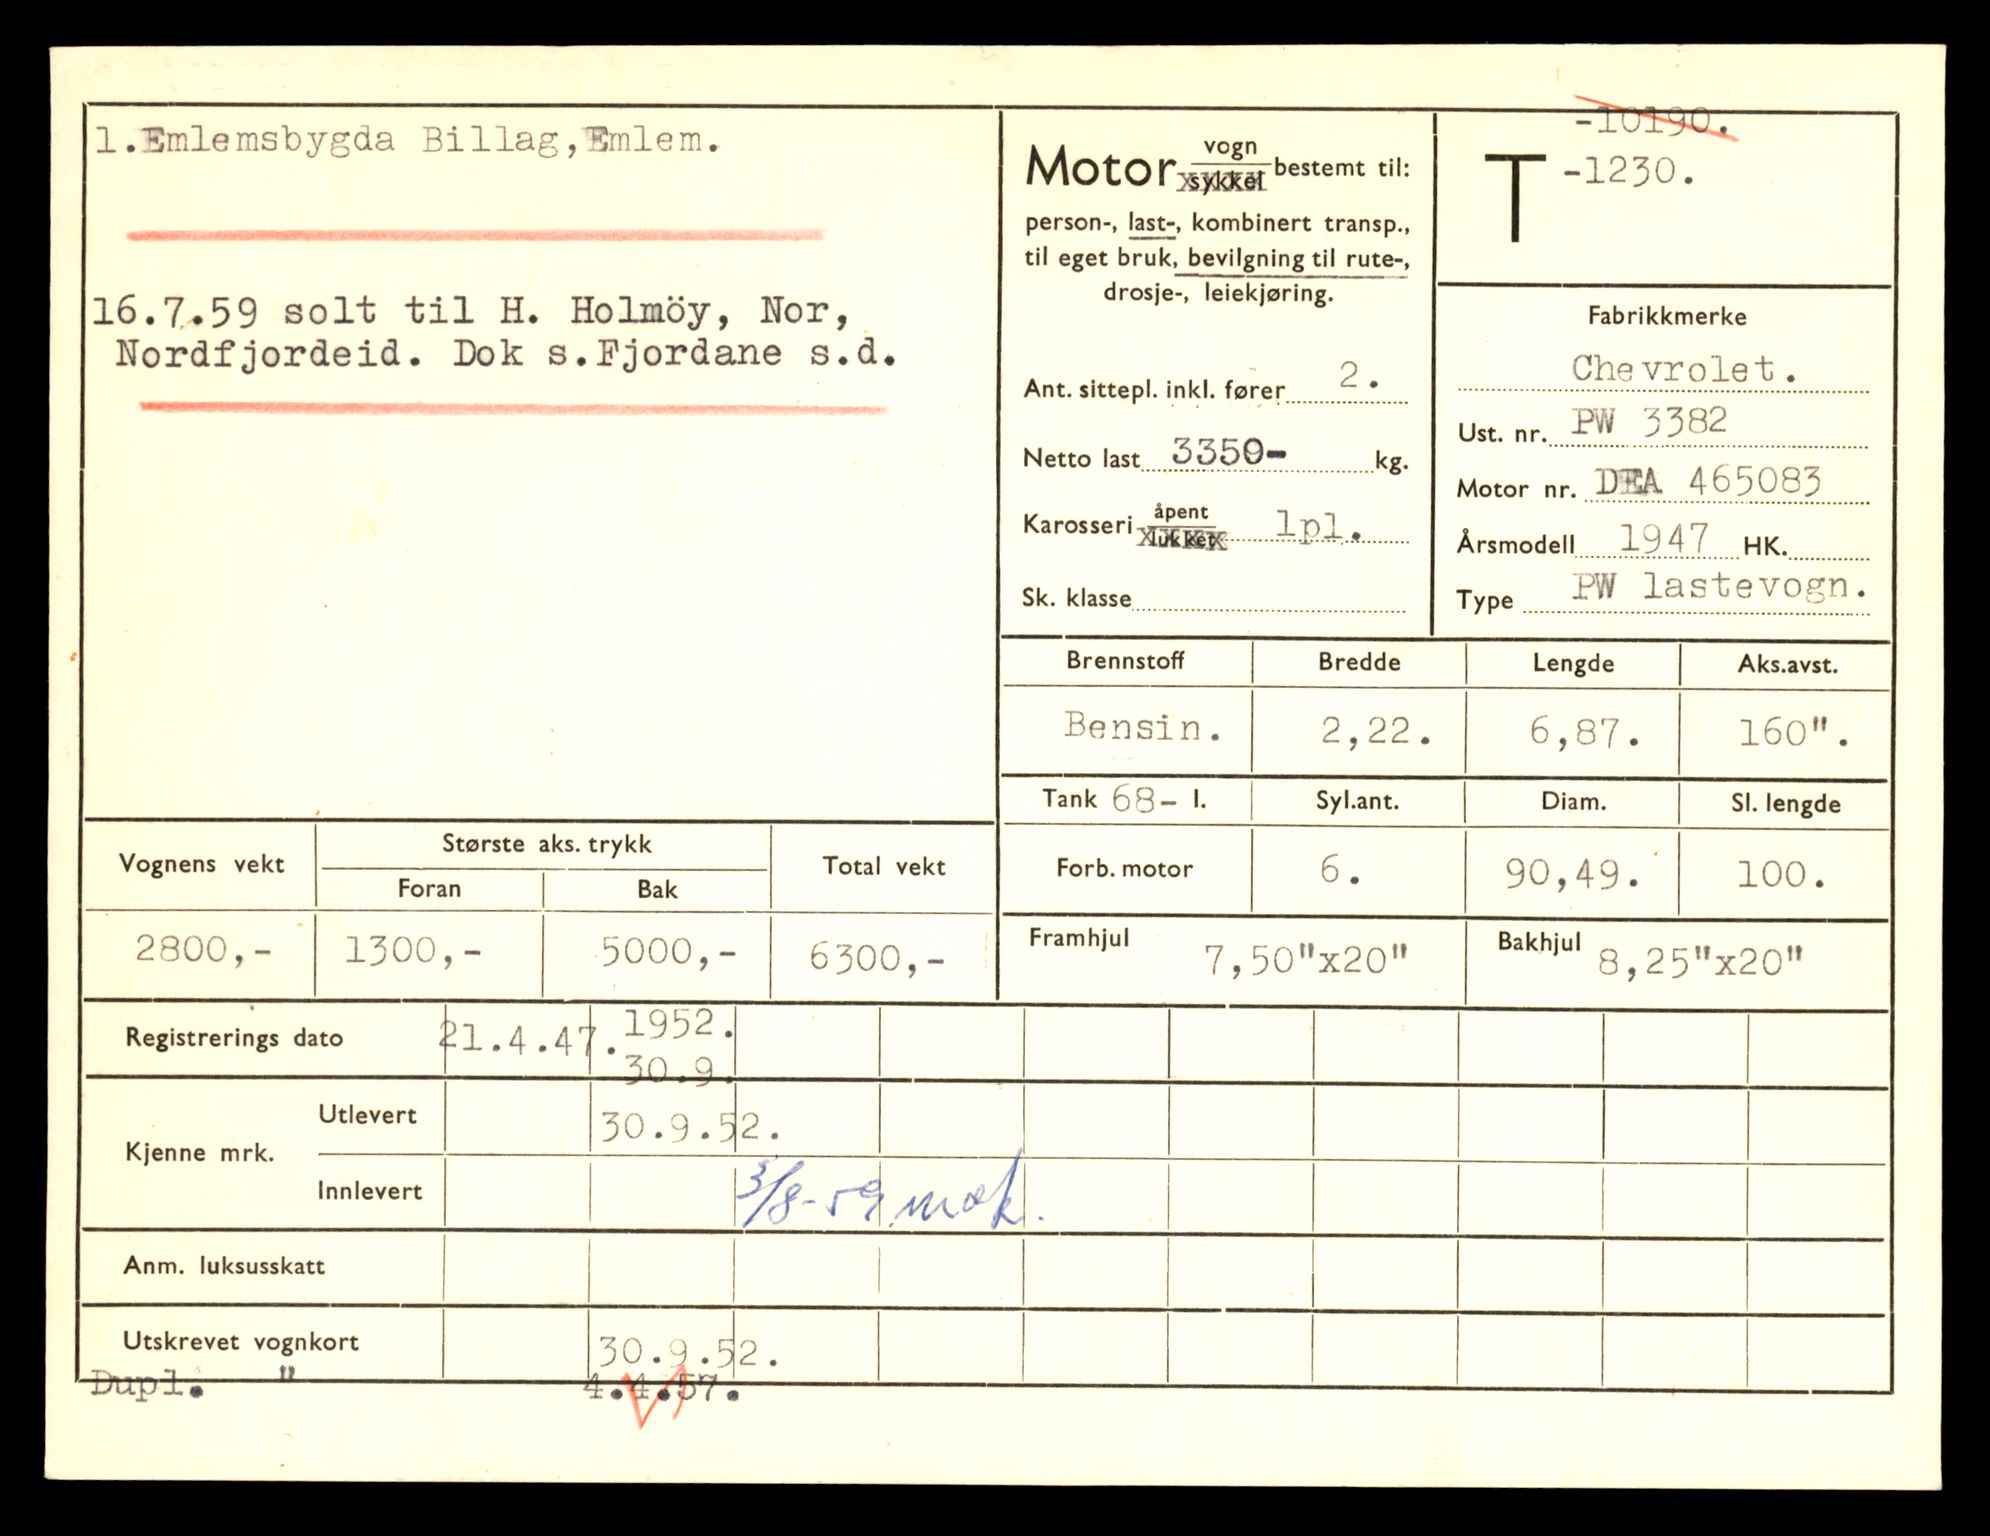 1.Emlemsbygda Billag,Emlem.
16.7.59 solt til H. Holmöy, Nor,
Nordfjordeid. Dok s.Fjordane s.d.
Motor vogn
sykkel bestemt til:
person-, last-, kombinert transp.,
til eget bruk, bevilgning til rute-,
drosje-, leiekjøring.
Ant. sittepl. inkl. fører 2.
Netto last 3350- kg.
Karosseri åpent
lukket lpl.
Sk. klasse
-10190.
T -1230.
Fabrikkmerke
Chevrolet.
Ust. nr. PW 3382
Motor nr. DEA 465083
Årsmodell 1947 HK.
Type PW lastevogn.
Brennstoff Bredde Lengde Aks.avst.
Bensin. 2,22. 6,87. 160".
Tank 68- l. Syl.ant. Diam. Sl. lengde
Forb. motor 6. 90,49. 100.
Framhjul 7,50"x20" Bakhjul 8,25"x20"
Vognens vekt Største aks. trykk Total vekt
Foran Bak
2800,- 1300,- 5000,- 6300,-
Registrerings dato 21.4.47. 1952.
30.9.
Kjenne mrk.
Utlevert 30.9.52.
Innlevert 3/8-59 mok.
Anm. luksusskatt
Utskrevet vognkort 30.9.52.
Dupl. " 4.4.57.